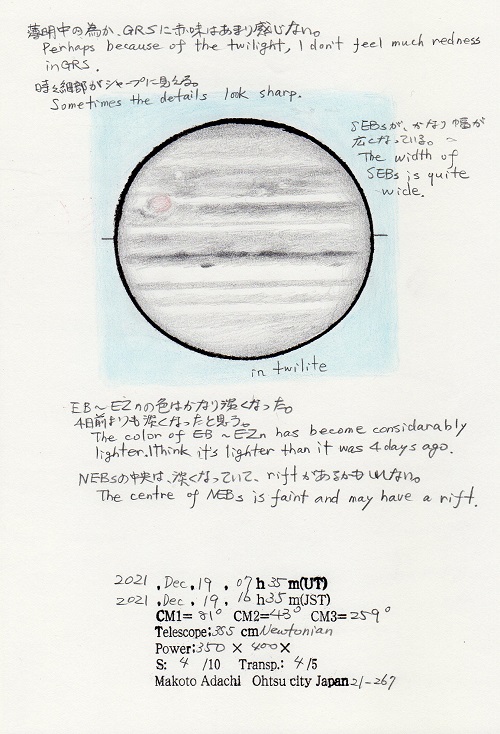 薄明中の為か、GRSに赤味はあまり感じない。
Perhaps because of the twilight, I don't feel much redness
in GRS.
時々細部がシャープに見える。
Sometimes the details look sharp.
SEBsが、かなり幅が
広くなっている。~
The width of
SEBs is quite
wide.
in twilite
EB～EZnの色はかなり淡くなった。
4日前よりも淡くなったと思う。
The color of EB ~ EZn has become considarably
lighter. I think it's lighter than it was 4 days ago.
NEBsの中央は、淡くなっていて、riftがあるかもしれない。
The centre of NEBs is faint and may have a rift.
2021 , Dec , 19 , 07 h 35 m(UT)
2021 , Dec , 19 , 16 h 35 m(JST)
CM1= 81° CM2= 43° CM3= 259°
Telescope: 355 cm Newtonian
Power: 350 × 400×
S: 4 /10 Transp.: 4 /5
Makoto Adachi Ohtsu city Japan 21-267